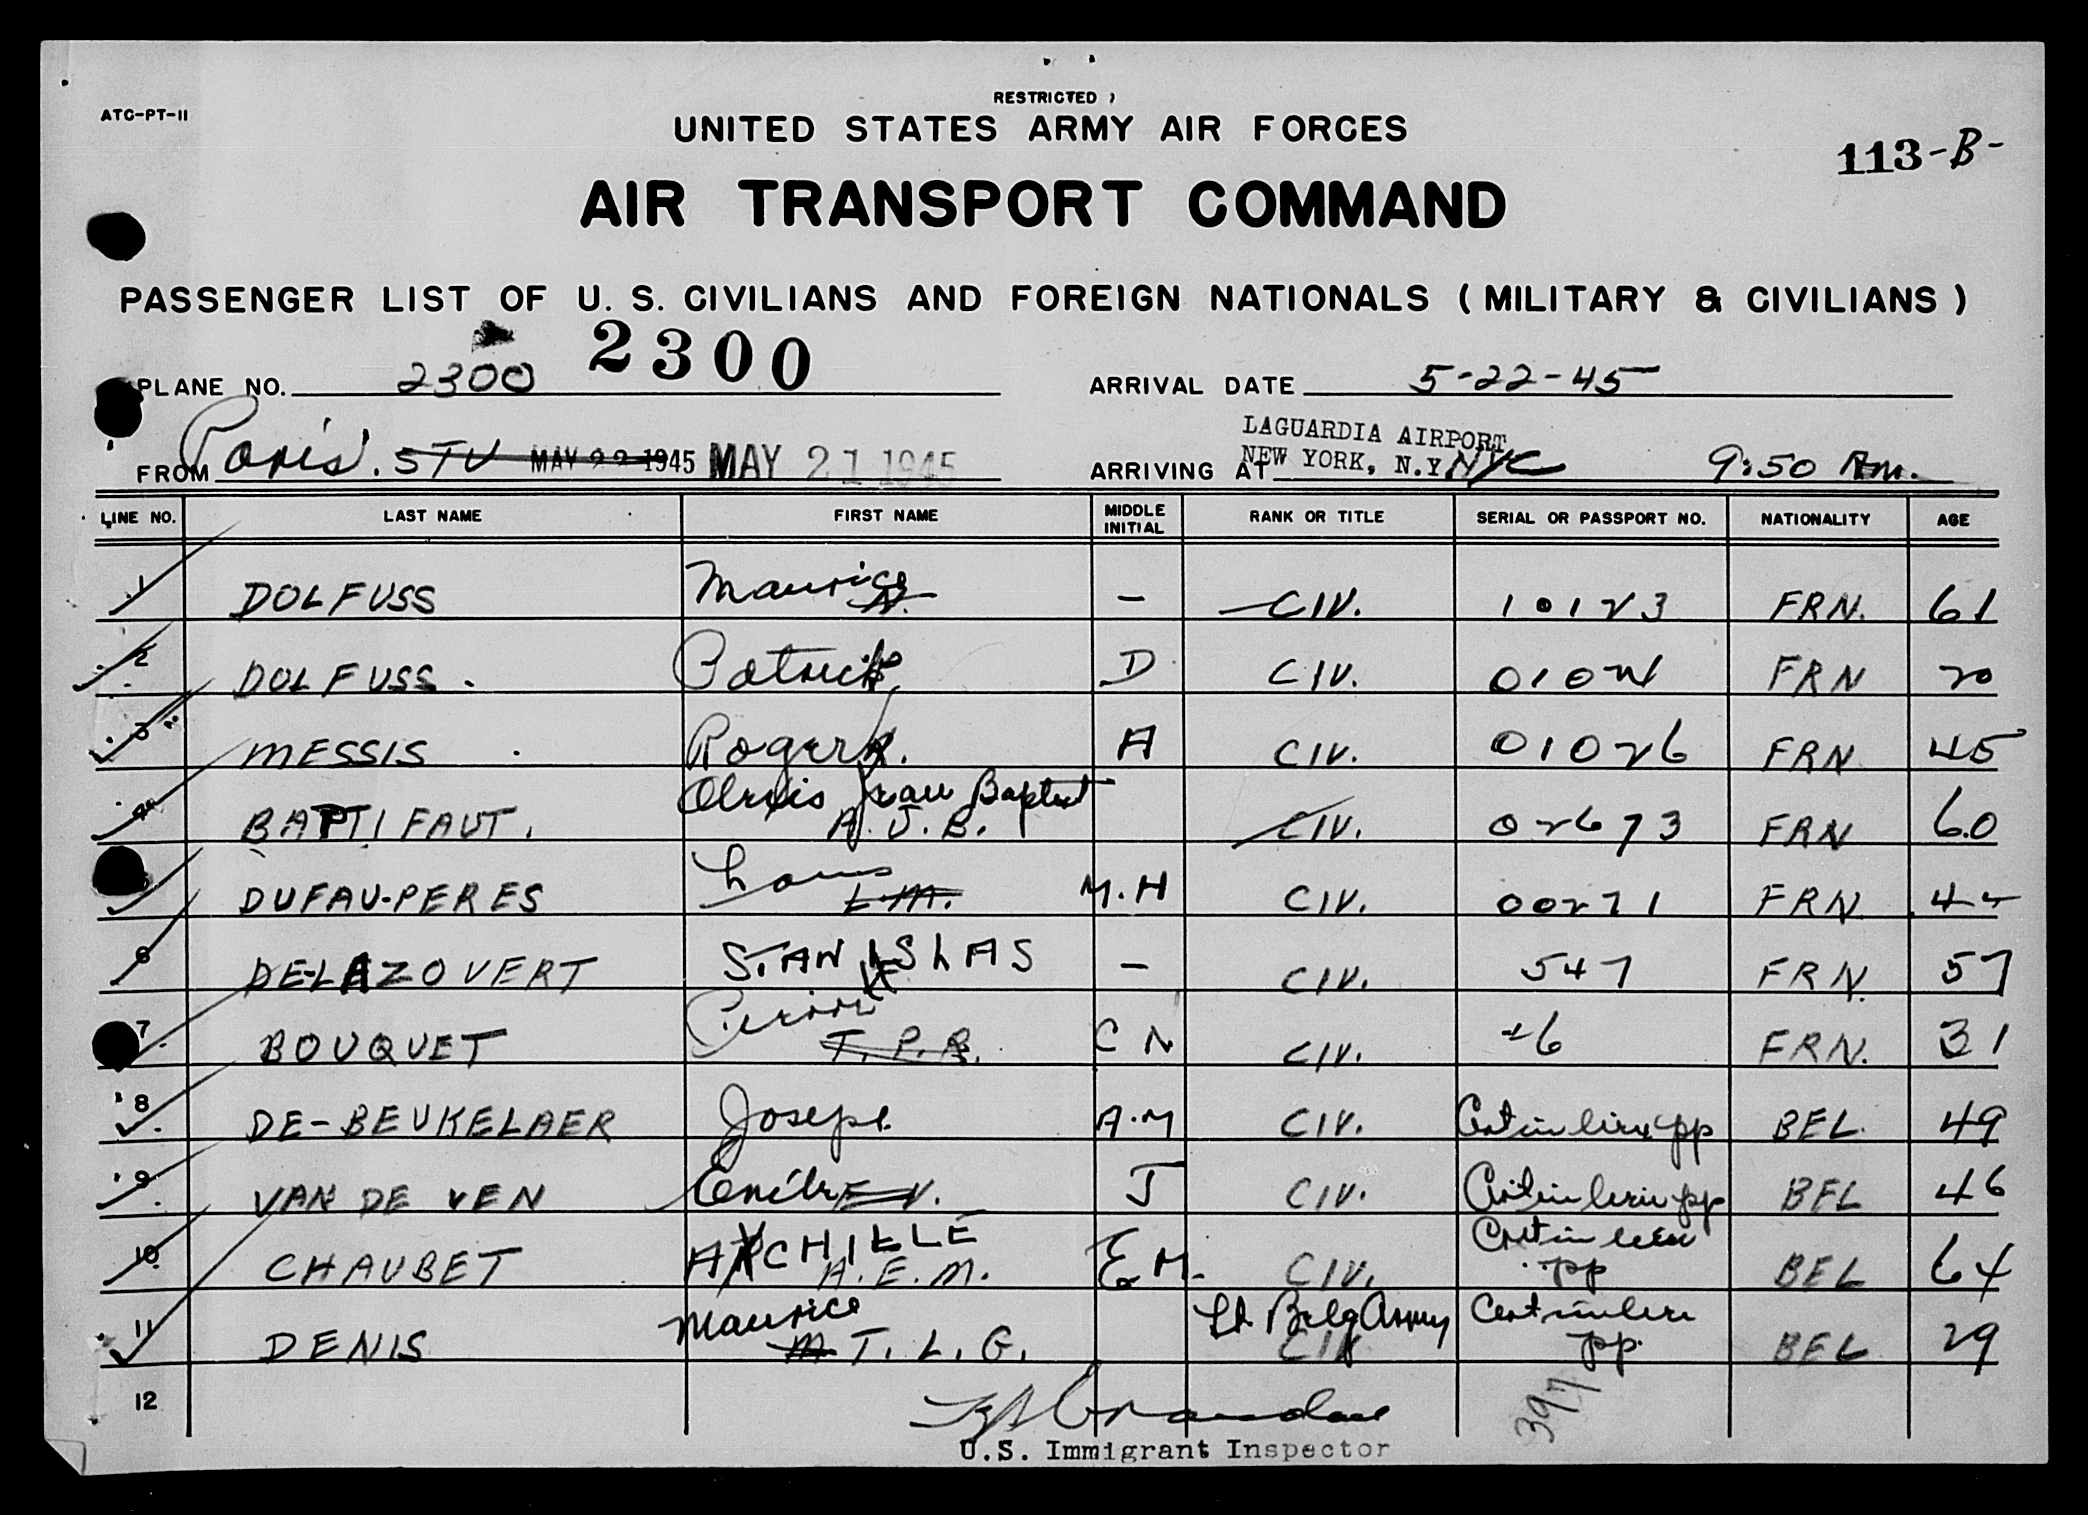 RESTRICTED
ATC-PT-11
UNITED STATES ARMY AIR FORCES
113-B-
AIR TRANSPORT COMMAND
PASSENGER LIST OF U. S. CIVILIANS AND FOREIGN NATIONALS ( MILITARY & CIVILIANS )
PLANE NO. 2300 2300 ARRIVAL DATE 5-22-45
LAGUARDIA AIRPORT
FROM Paris. STV MAY 22 1945 MAY 21 1945 ARRIVING AT NEW YORK, N.Y. NYC 9:50 Am.
LINE NO. LAST NAME FIRST NAME MIDDLE INITIAL RANK OR TITLE SERIAL OR PASSPORT NO. NATIONALITY AGE
1 DOLFUSS Maurice - CIV. 10123 FRN. 61
2 DOLFUSS. Patrick D CIV. FRN 20
3 MESSIS Roger A CIV. 01026 FRN 45
4 BAPTIFAUT. Alexis Jean Baptist A. J. B. CIV. 02673 FRN 60
5 DUFAU-PERES Louis L.M. M.H CIV. 00271 FRN
6 DE-LAZOVERT STANISLAS - CIV. 547 FRN. 57
7 BOUQUET Pierre T. P. R. C N CIV. 26 FRN. 31
8 DE-BEUKELAER Joseph A.M CIV. pp BEL. 49
9 VAN DE VEN Emile E V. J CIV. pp BEL 46
10 CHAUBET ACHILLE A. E. M. E M. CIV. pp BEL 64
11 DENIS Maurice M T. L. G. Lt Belg Army CIV pp. BEL 29
12
397
U.S. Immigrant Inspector